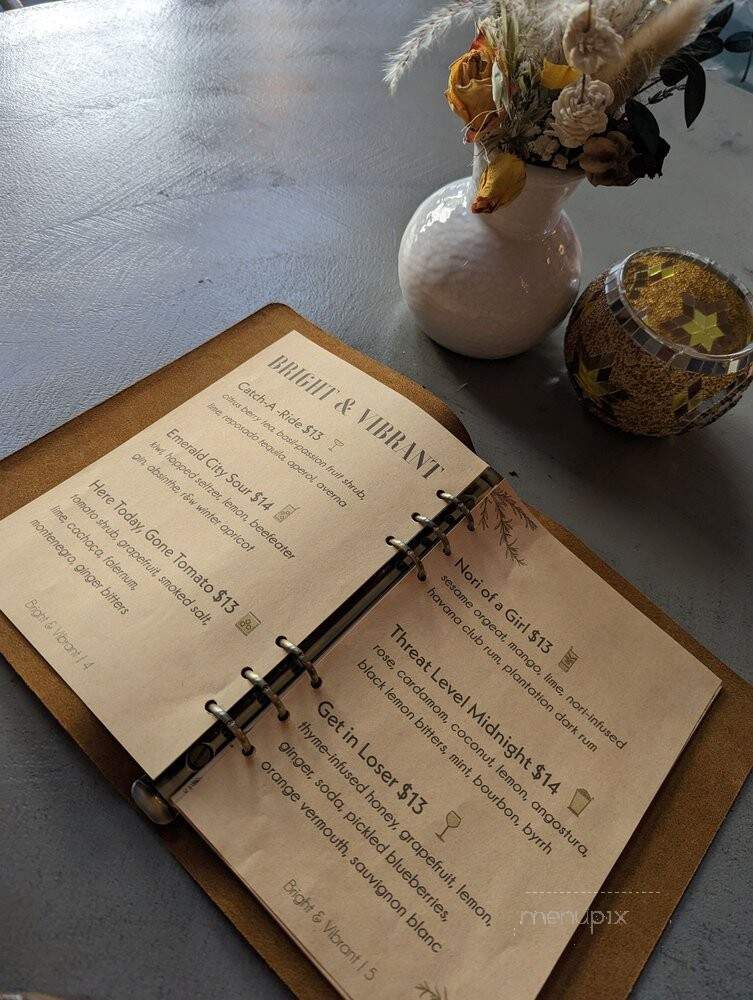 BRIGHT & VIBRANT
Catch-A -Ride $13
citrus berry tea, basil-passion fruit shrub,
lime, reposado tequila, aperol, averna
Emerald City Sour $14
kiwi, hopped seltzer, lemon, beefeater
gin, absinthe, r&w winter apricot
Here Today, Gone Tomato $13
tomato shrub, grapefruit, smoked salt,
lime, cachaça, falernum,
montenegro, ginger bitters
Bright & Vibrant | 4
Nori of a Girl $13
sesame orgeat, mango, lime, nori-infused
havana club rum, plantation dark rum
Threat Level Midnight $14
rose, cardamom, coconut, lemon, angostura,
black lemon bitters, mint, bourbon, byrrh
Get in Loser $13
thyme-infused honey, grapefruit, lemon,
ginger, soda, pickled blueberries,
orange vermouth, sauvignon blanc
Bright & Vibrant | 5
menupix